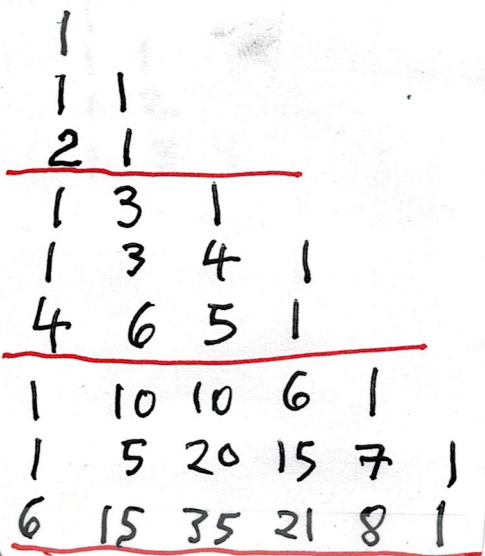 1
1 1
2 1
1 3 1
1 3 4 1
4 6 5 1
1 10 10 6 1
1 5 20 15 7 1
6 15 35 21 8 1